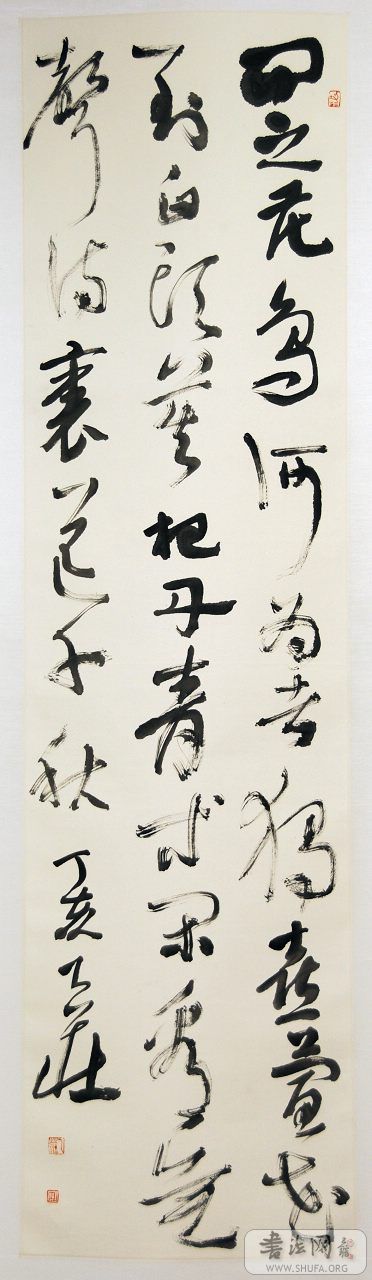 問之花鳥何為者獨喜萱花
到白頭莫把丹青等閑看無
聲詩裏頌千秋 丁亥 莊
書法网
WWW.SHUFA.ORG